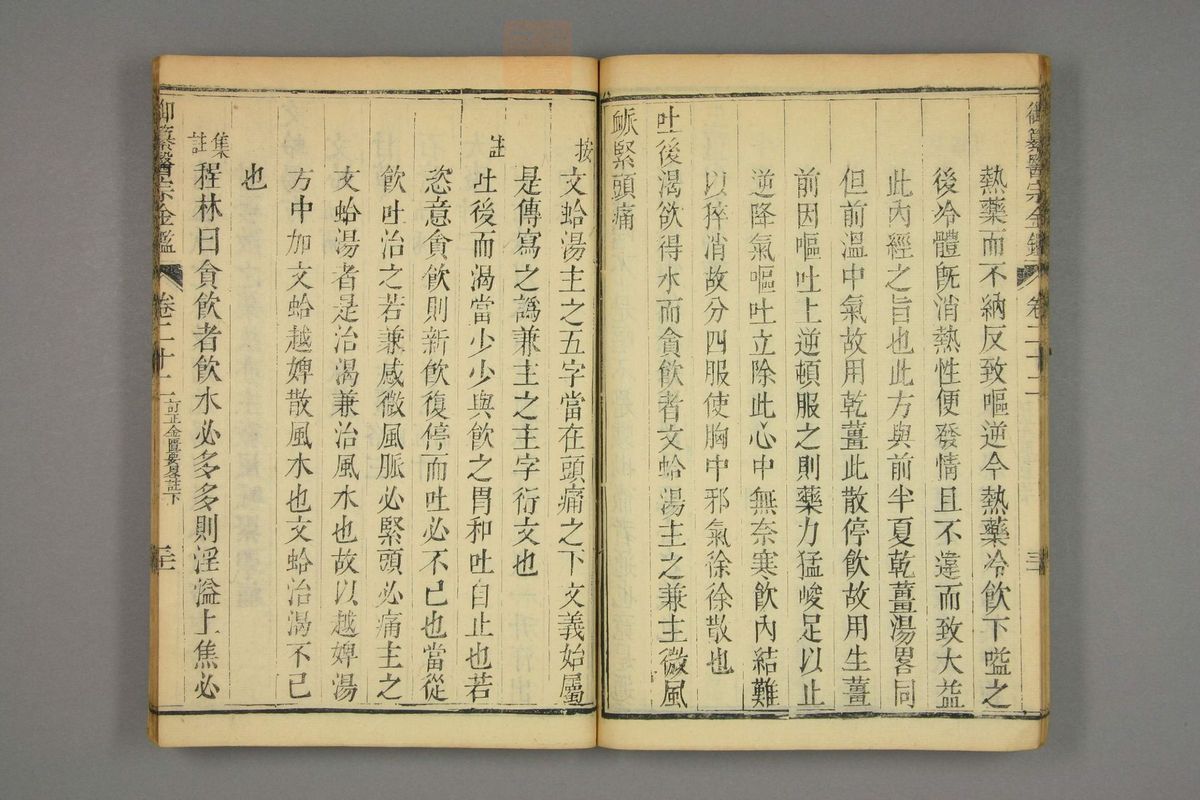 御纂醫宗金鑑 卷二十二 三十
熱藥而不納反致嘔逆今熱藥冷飲下嗌之
後冷體既消熱性便發情且不違而致大益
此內經之旨也此方與前半夏乾薑湯畧同
但前溫中氣故用乾薑此散停飲故用生薑
前因嘔吐上逆頓服之則藥力猛峻足以止
逆降氣嘔吐立除此心中無奈寒飲內結難
以猝消故分四服使胸中邪氣徐徐散也
吐後渴欲得水而貪飲者文蛤湯主之兼主微風
脈緊頭痛
按文蛤湯主之五字當在頭痛之下文義始屬
是傳寫之譌兼主之主字衍文也
註吐後而渴當少少與飲之胃和吐自止也若
恣意貪飲則新飲復停而吐必不已也當從
飲吐治之若兼感微風脈必緊頭必痛主之
文蛤湯者是治渴兼治風水也故以越婢湯
方中加文蛤越婢散風水也文蛤治渴不已
也
集註程林曰貪飲者飲水必多多則淫溢上焦必
御纂醫宗金鑑 卷二十二 訂正金匱要畧註下 三十一